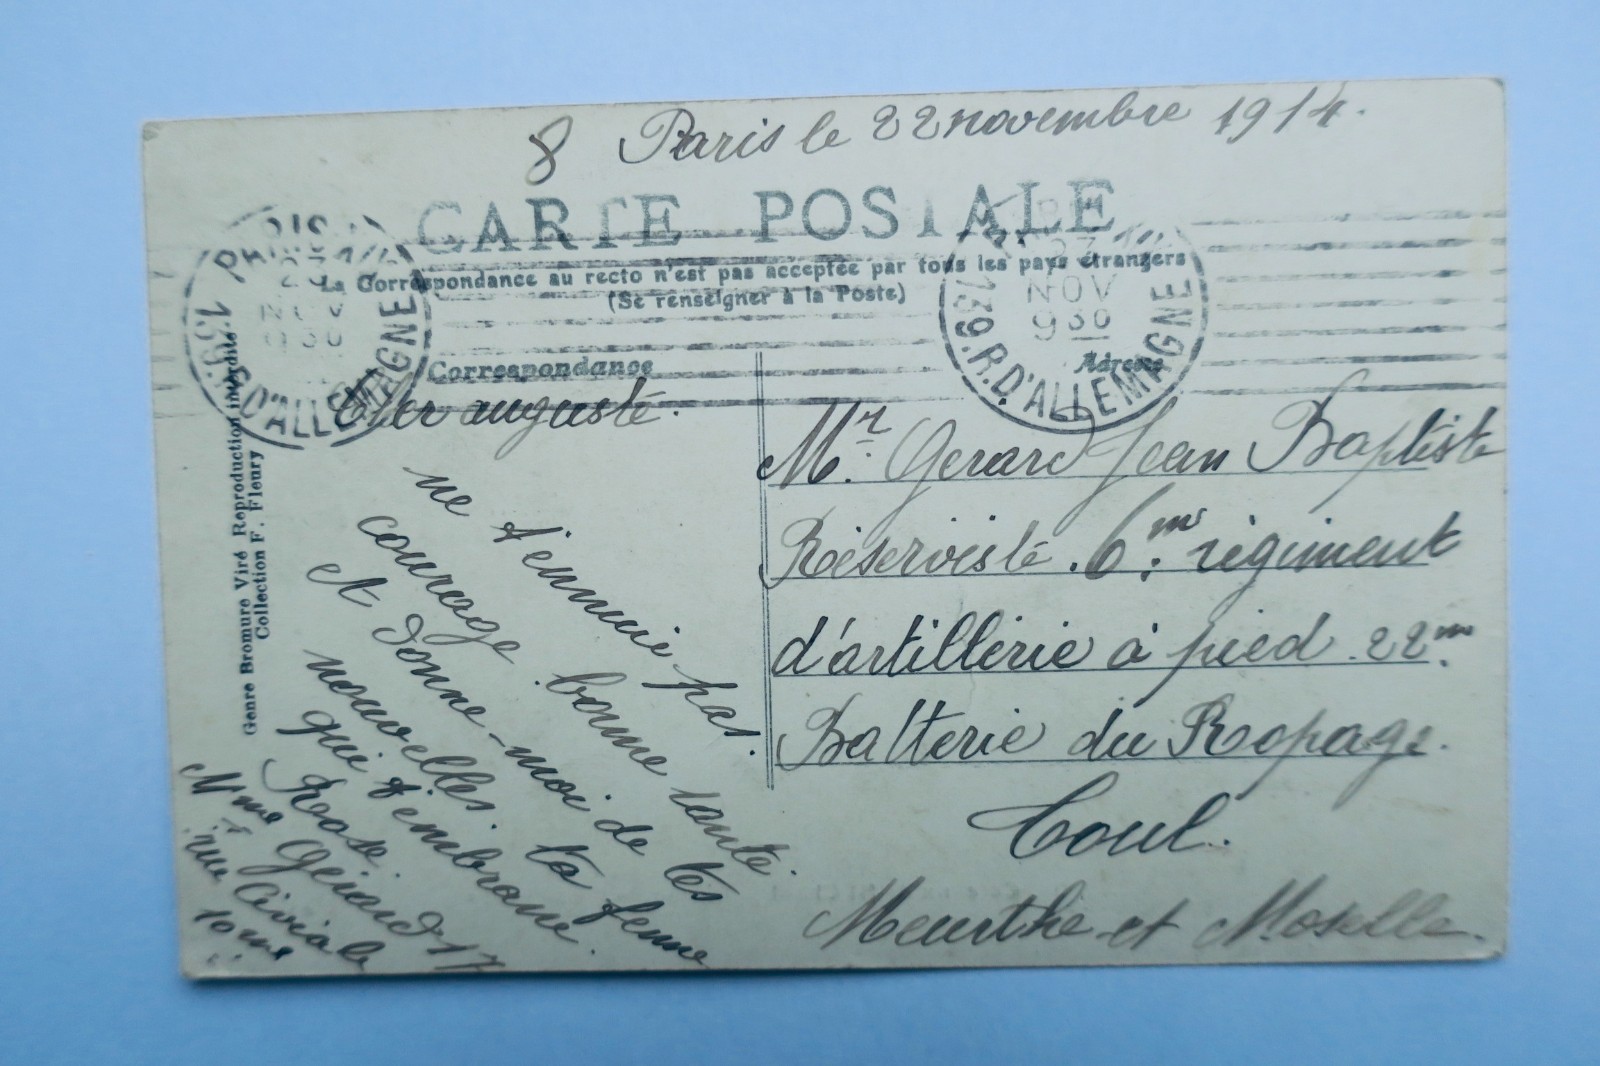 8 Paris le 22 novembre 1914.
CARTE POSTALE
La Correspondance au recto n'est pas acceptée par tous les pays étrangers
(Se renseigner à la Poste)
PARIS
23
NOV
930
139.R.D'ALLEMAGNE
23
NOV
930
139.R.D'ALLEMAGNE
Correspondance
Adresse
Cher auguste.
ne t'ennuie pas.
courage. bonne santé.
et donne-moi de tes
nouvelles. ta femme
qui t'embrasse.
Rose.
Mme Gérard 17
rue Civiale
10me
Mr. Gerard Jean Baptiste
Réserviste. 6me régiment
d'artillerie à pied. 22me
Batterie du Ropage.
Toul.
Meurthe et Moselle.
Genre Bromure Viré Reproduction interdite.
Collection F. Fleury